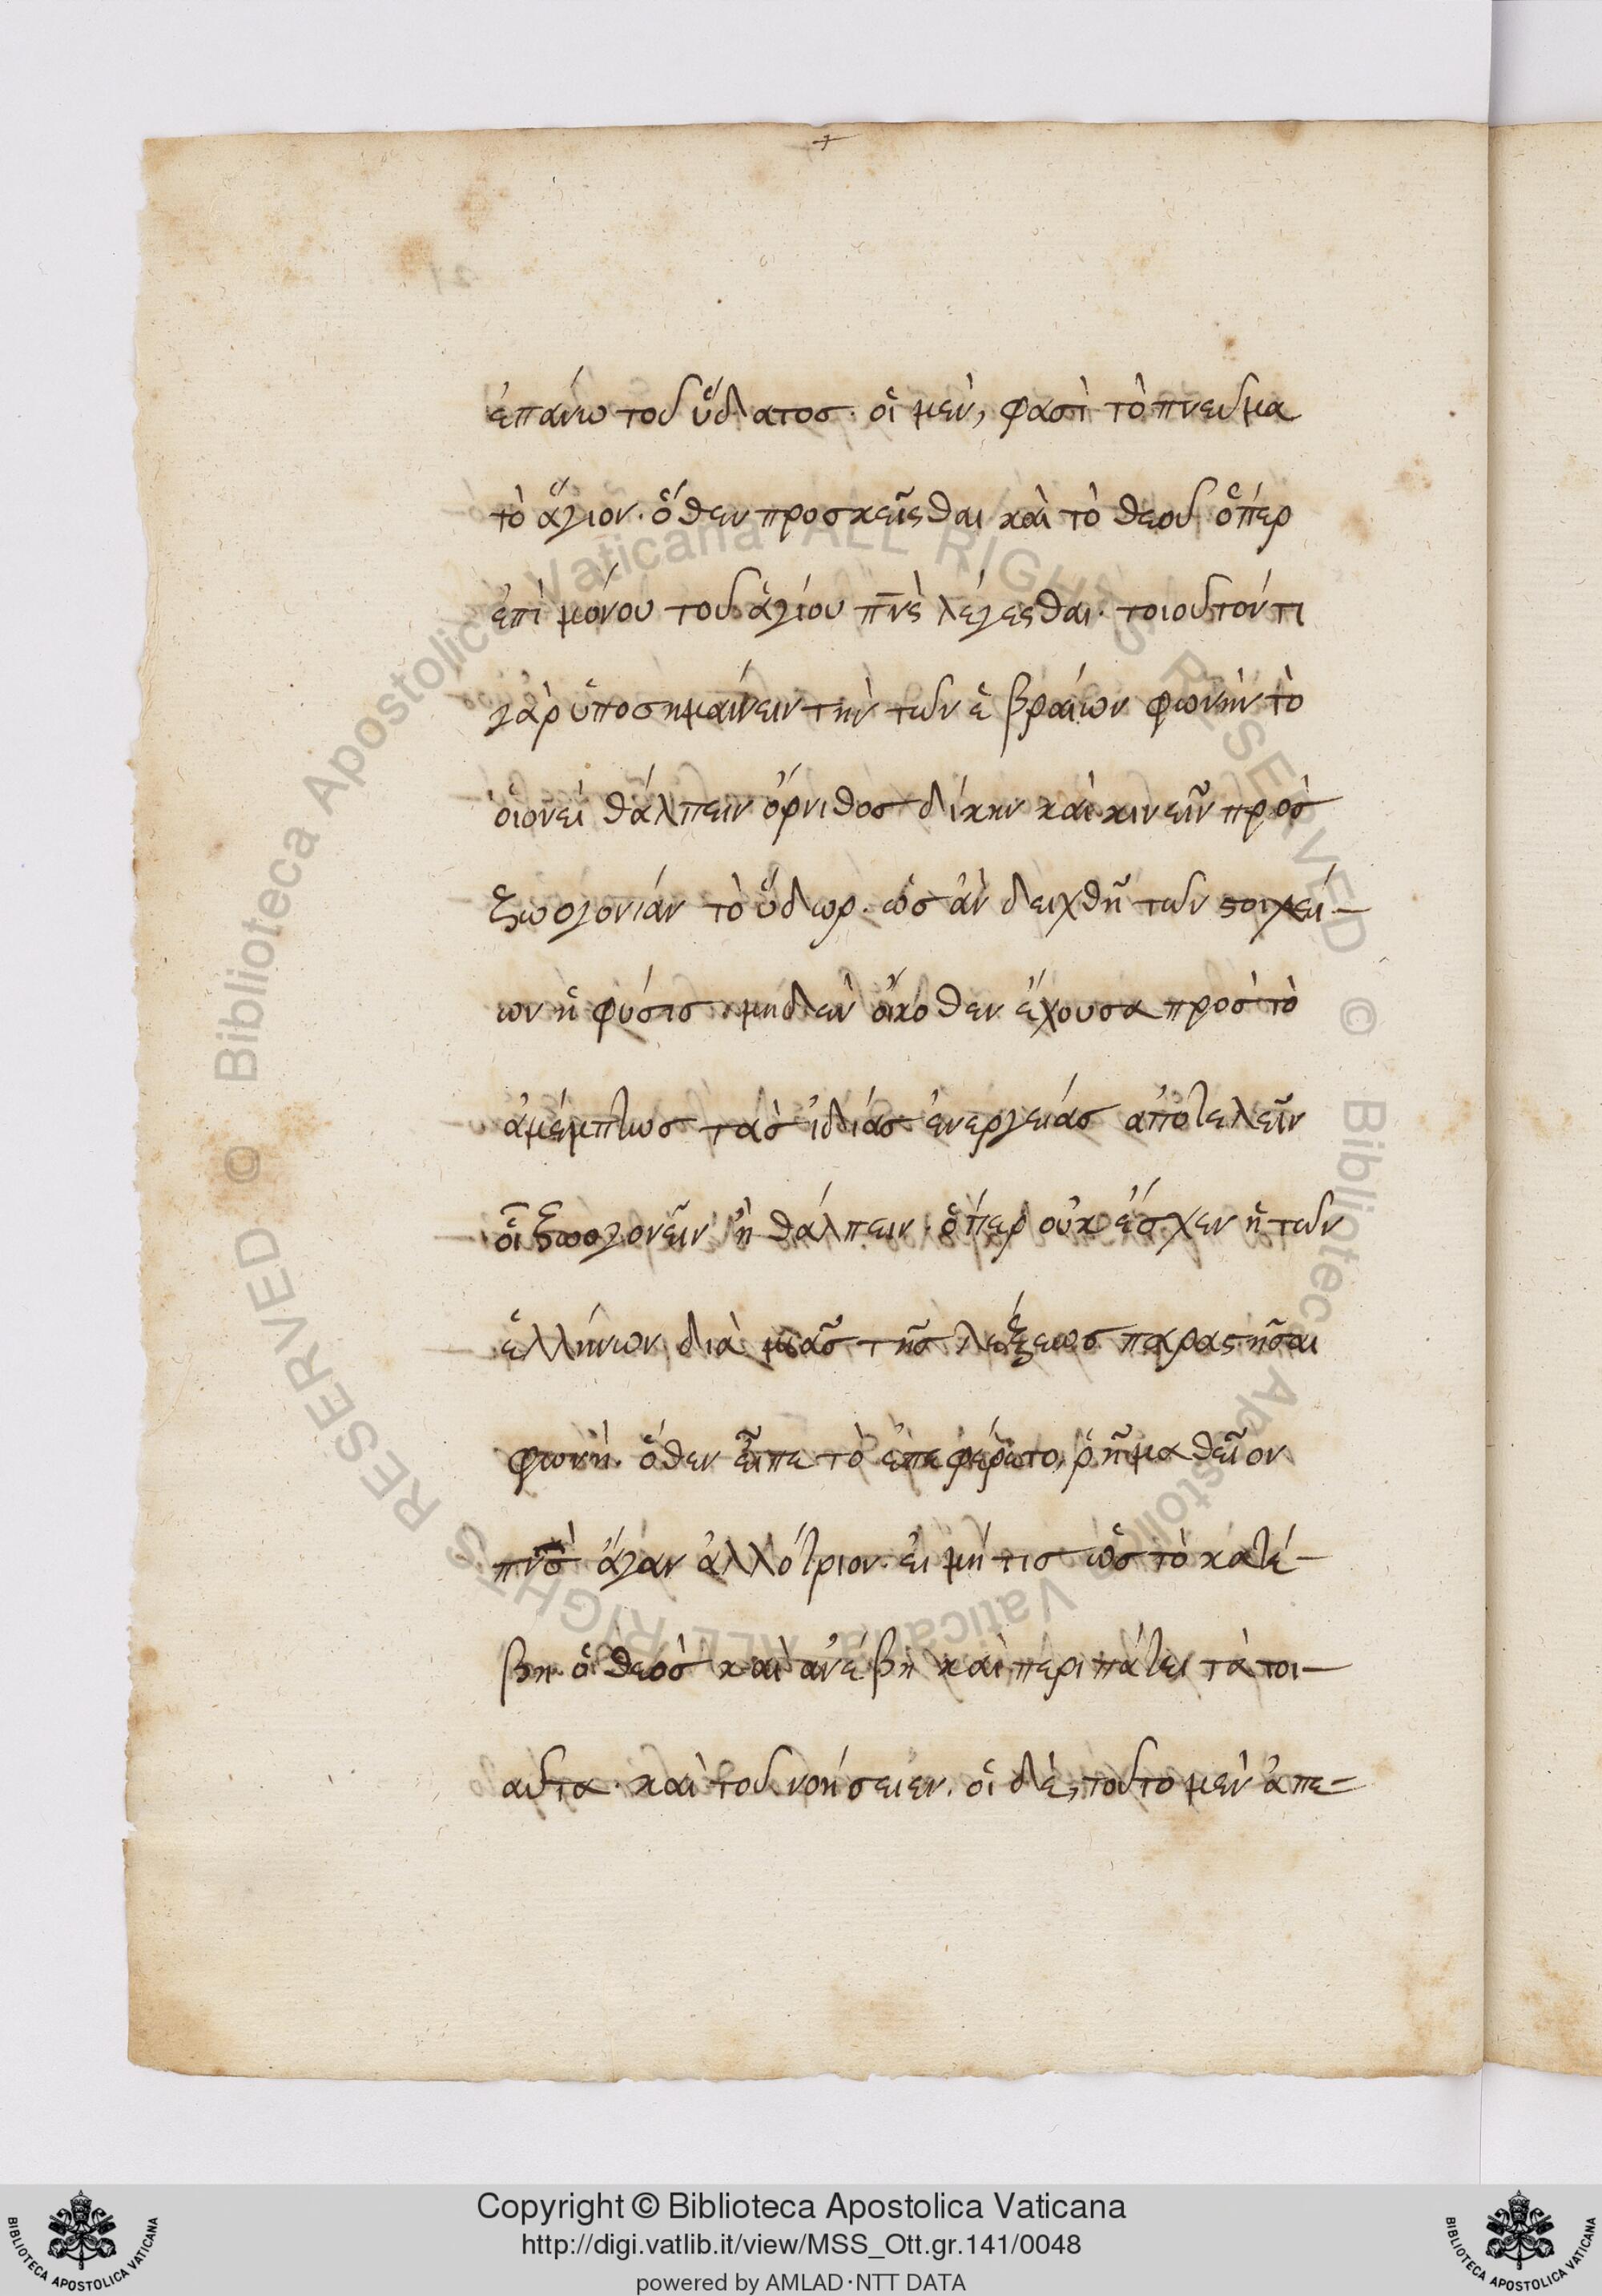 +
ἐπάνω τοῦ ὕδατος· οἱ μὲν, φασὶ τὸ πνεῦμα
τὸ ἅγιον· ὅθεν προσκεῖσθαι καὶ τὸ θεοῦ ὅπερ
ἐπὶ μόνου τοῦ ἁγίου πνς λέγεσθαι· τοιοῦτόν τι
γὰρ ὑποσημαίνειν τὴν τῶν ἑβραίων φωνὴν τὸ
οἱονεὶ θάλπειν ὄρνιθος δίκην καὶ κινεῖν πρὸς
ζωογονίαν τὸ ὕδωρ· ὡς ἂν δειχθῇ τῶν στοιχεί-
ων ἡ φύσις μηδὲν οἴκοθεν ἔχουσα πρὸς τὸ
ἀμέμπτως τὰς ἰδίας ἐνεργείας ἀποτελεῖν
οἷ ζωογονεῖν ἢ θάλπειν· ὅπερ οὐκ ἔσχεν ἡ τῶν
ἑλλήνων διὰ μιᾶς τῆς λέξεως παραστῆσαι
φωνή· ὅθεν εἶπε τὸ ἐπεφέρετο, ῥῆμα θεῖον
πνς ἄγαν ἀλλότριον· εἰ μή τις ὡς τὸ κατέ-
βη ὁ θεὸς καὶ ἀνέβη καὶ περιπάτει τὰ τοι-
αῦτα· καὶ τοῦ νοήσειεν· οἱ δὲ, τοῦτο μὲν ἀπε-
© Biblioteca Apostolica Vaticana ALL RIGHTS RESERVED © Biblioteca Apostolica Vaticana ALL RIGHTS RESERVED
BIBLIOTECA APOSTOLICA VATICANA
Copyright © Biblioteca Apostolica Vaticana
http://digi.vatlib.it/view/MSS_Ott.gr.141/0048
powered by AMLAD·NTT DATA
BIBLIOTECA APOSTOLICA VATICANA